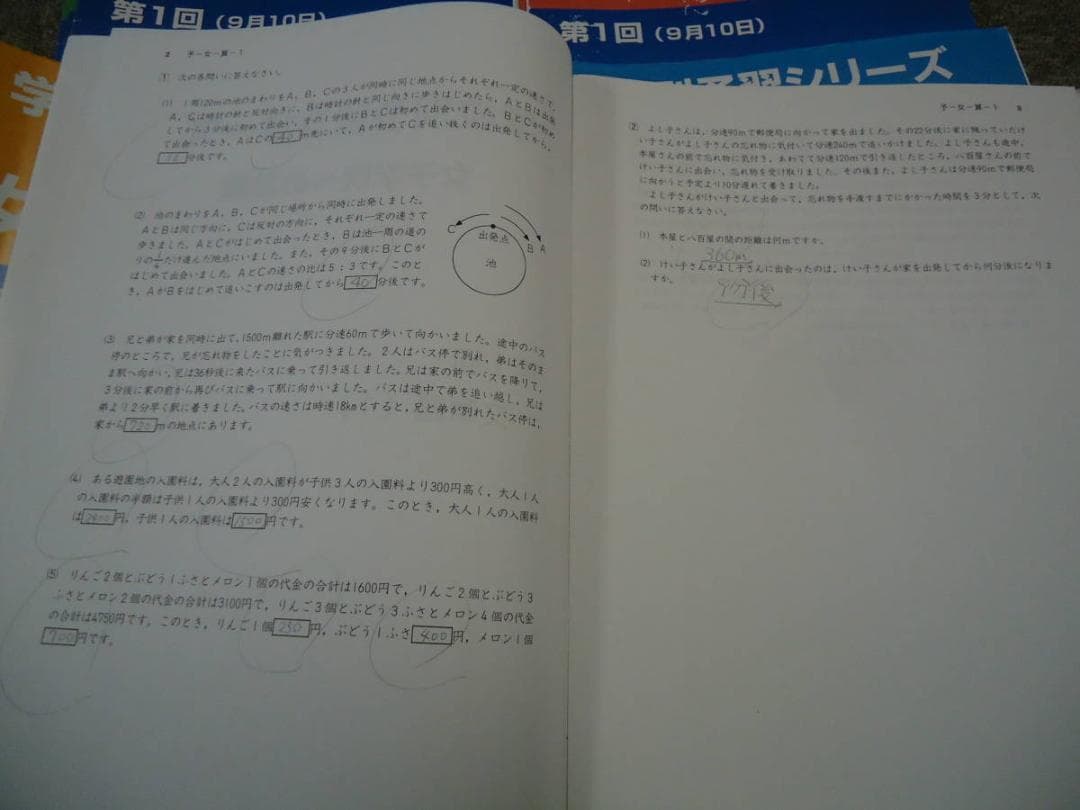 第1回(9月10日)
第1回(9月10日)
予習シリーズ
学
2 予-女-算-1
1 次の各問いに答えなさい。
(1) 1周120mの池のまわりをA,B,Cの3人が同時に同じ地点からそれぞれ一定の速さで,
A,Cは時計の針と反対向きに,Bは時計の針と同じ向きに歩きはじめたら,AとBは出発
してから3分後に初めて出会い,その1分後にBとCは初めて出会いました。BとCが初め
て出会ったとき,AはCの40m先にいて,Aが初めてCを追い抜くのは出発してから,
分後です。
(2) 池のまわりをA,B,Cが同じ場所から同時に出発しました。
AとBは同じ方向に,Cは反対の方向に,それぞれ一定の速さで
歩きました。AとCがはじめて出会ったとき,Bは池一周の道の
りの だけ進んだ地点にいました。また,その9分後にBとCが
はじめて出会いました。AとCの速さの比は5:3です。このと
き,AがBをはじめて追いこすのは出発してから40分後です。
C 出発点 B A
池
(3) 兄と弟が家を同時に出て,1500m離れた駅に分速60mで歩いて向かいました。途中のバス
停のところで,兄が忘れ物をしたことに気がつきました。2人はバス停で別れ,弟はそのま
ま駅へ向かい,兄は36秒後に来たバスに乗って引き返しました。兄は家の前でバスを降りて,
3分後に家の前から再びバスに乗って駅に向かいました。バスは途中で弟を追い越し,兄は
弟より2分早く駅に着きました。バスの速さは時速18kmとすると,兄と弟が別れたバス停は,
家から720mの地点にあります。
(4) ある遊園地の入園料は,大人2人の入園料が子供3人の入園料より300円高く,大人1人
の入園料の半額は子供1人の入園料より300円安くなります。このとき,大人1人の入園料
は2400円,子供1人の入園料は1500円です。
(5) りんご2個とぶどう1ふさとメロン1個の代金の合計は1600円で,りんご2個とぶどう3
ふさとメロン2個の代金の合計は3100円で,りんご3個とぶどう3ふさとメロン4個の代金
の合計は4750円です。このとき,りんご1個250円,ぶどう1ふさ400円,メロン1個
700円です。
予-女-算-1 3
2 よし子さんは,分速90mで郵便局に向かって家を出ました。その22分後に家に残っていたけ
い子さんがよし子さんの忘れ物に気付いて分速240mで追いかけました。よし子さんも途中,
本屋さんの前で忘れ物に気付き,あわてて分速120mで引き返したところ,八百屋さんの前で
けい子さんに出会い,忘れ物を受け取りました。その後また,よし子さんは分速90mで郵便局
に向かうと予定より10分遅れて着きました。
よし子さんがけい子さんと出会って,忘れ物を手渡すまでにかかった時間を3分として,次
の問いに答えなさい。
(1) 本屋と八百屋の間の距離は何mですか。
360m
(2) けい子さんがよし子さんに出会ったのは,けい子さんが家を出発してから何分後になりま
すか。
9分後